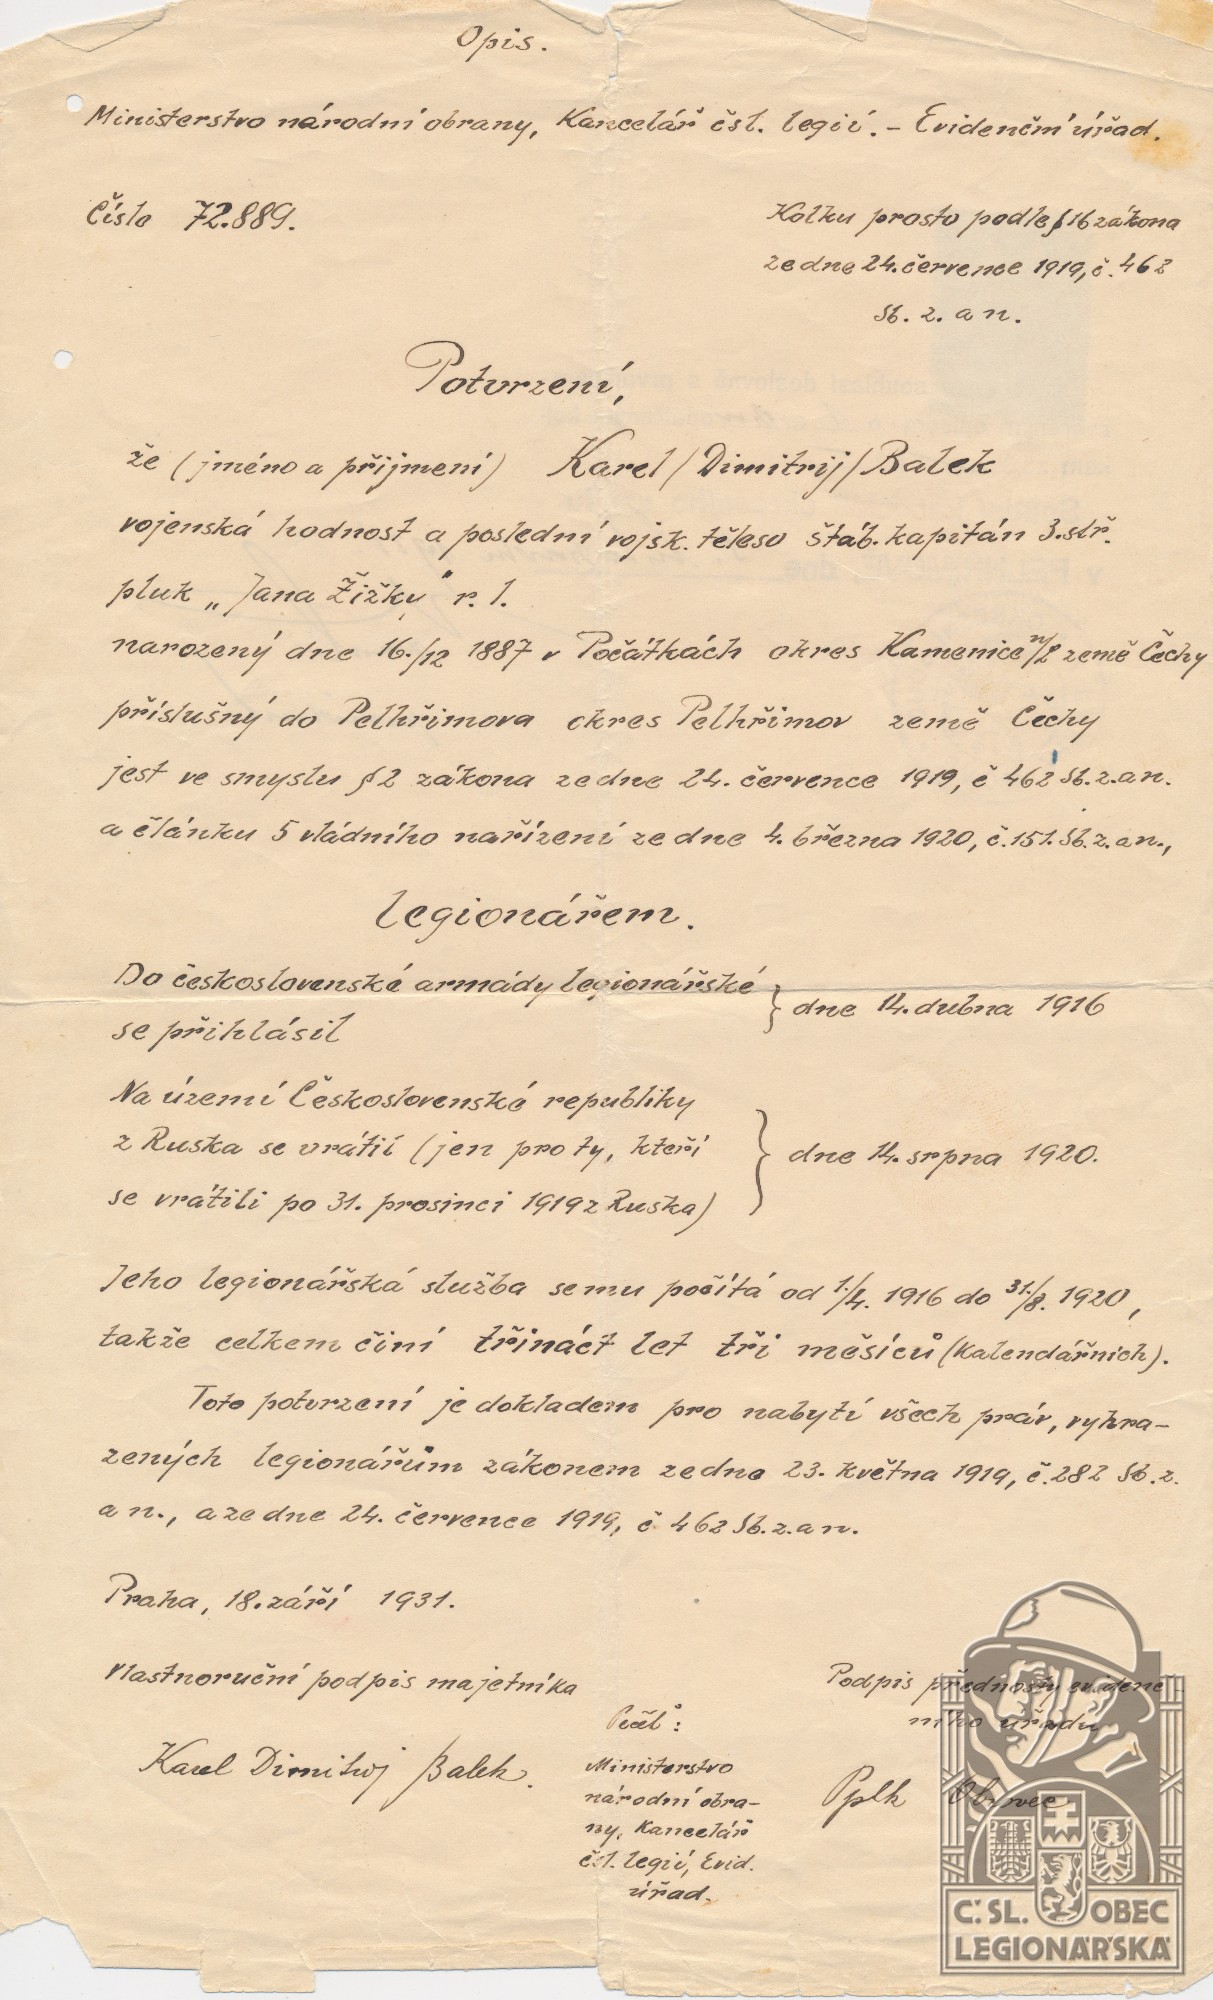 Opis.
Ministerstvo národní obrany, Kancelář čsl. legií. – Evidenční úřad.
Číslo 72.889.
Kolku prosto podle § 16 zákona
ze dne 24. července 1919, č. 462
Sb. z. a n.
Potvrzení,
že (jméno a příjmení) Karel /Dimitrij/ Balek
vojenská hodnost a poslední vojsk. těleso štáb. kapitán 3. stř.
pluk „Jana Žižky" r. l.
narozený dne 16./12 1887 v Počátkách okres Kamenice n/L země Čechy
příslušný do Pelhřimova okres Pelhřimov země Čechy
jest ve smyslu § 2 zákona ze dne 24. července 1919, č 462 Sb. z. a n.
a článku 5 vládního nařízení ze dne 4. března 1920, č. 151. Sb. z. a n.,
legionářem.
Do československé armády legionářské
se přihlásil } dne 14. dubna 1916
Na území Československé republiky
z Ruska se vrátil (jen pro ty, kteří } dne 14. srpna 1920.
se vrátili po 31. prosinci 1919 z Ruska)
Jeho legionářská služba se mu počítá od 1./4. 1916 do 31./8. 1920,
takže celkem činí třináct let tři měsíců (kalendářních).
Toto potvrzení je dokladem pro nabytí všech práv, vyhra-
zených legionářům zákonem ze dne 23. května 1919, č. 282 Sb. z.
a n., a ze dne 24. července 1919, č 462 Sb. z. a n.
Praha, 18. září 1931.
Vlastnoruční podpis majetníka
Podpis přednosty evidenč-
ního úřadu
Karel Dimitrij Balek.
Pplk
Pečeť:
Ministerstvo
národní obra-
ny, Kancelář
čsl. legií, Evid.
úřad.
Č.SL. OBEC
LEGIONÁŘSKÁ